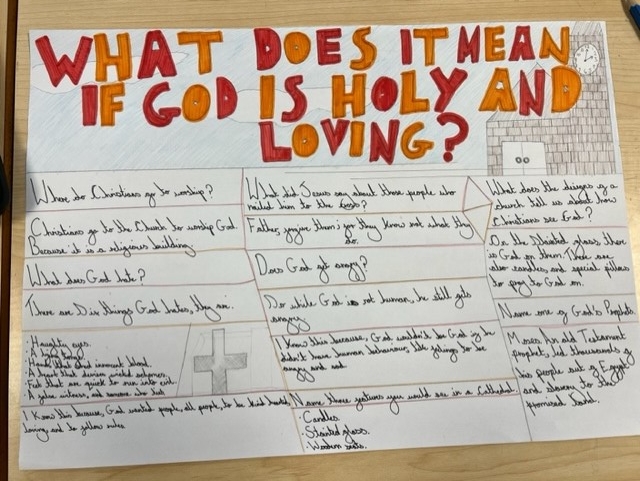 WHAT DOES IT MEAN
IF GOD IS HOLY AND
LOVING?
Where do Christians go to worship?
Christians go to the Church to worship God.
Because it is a religious building.
What does God hate?
There are things God hates, they are.
· Haughty eyes.
· A lying
· Hands that shed innocent blood
· A heart that devises wicked schemes.
· Feet that are quick to run into evil.
· A false witness, and someone who
I Know this because, God wanted people, all people, to be kind
loving and to follow rules
What did Jesus say about those people who
nailed him to the cross?
Father, forgive them for they know not what they
do.
Does God get angry?
while God is not human, he still gets
angry.
I Know this because, God wouldn't be God if he
didn't have human behaviours, like feelings to be
angry and sad
Name three features you would see in a Cathedral.
· Candles
· Stainted glass.
· Wooden seats.
What does the designs of a
church tell us about how
Christians see God?
On the Stainted glass, there
is God on them. There are
also candles, and special pillows
to pray to God on.
Name one of God's Prophets.
Moses. An old Testament
prophet, led thousands of
his people out of Egypt
and slavery to the
promised land.